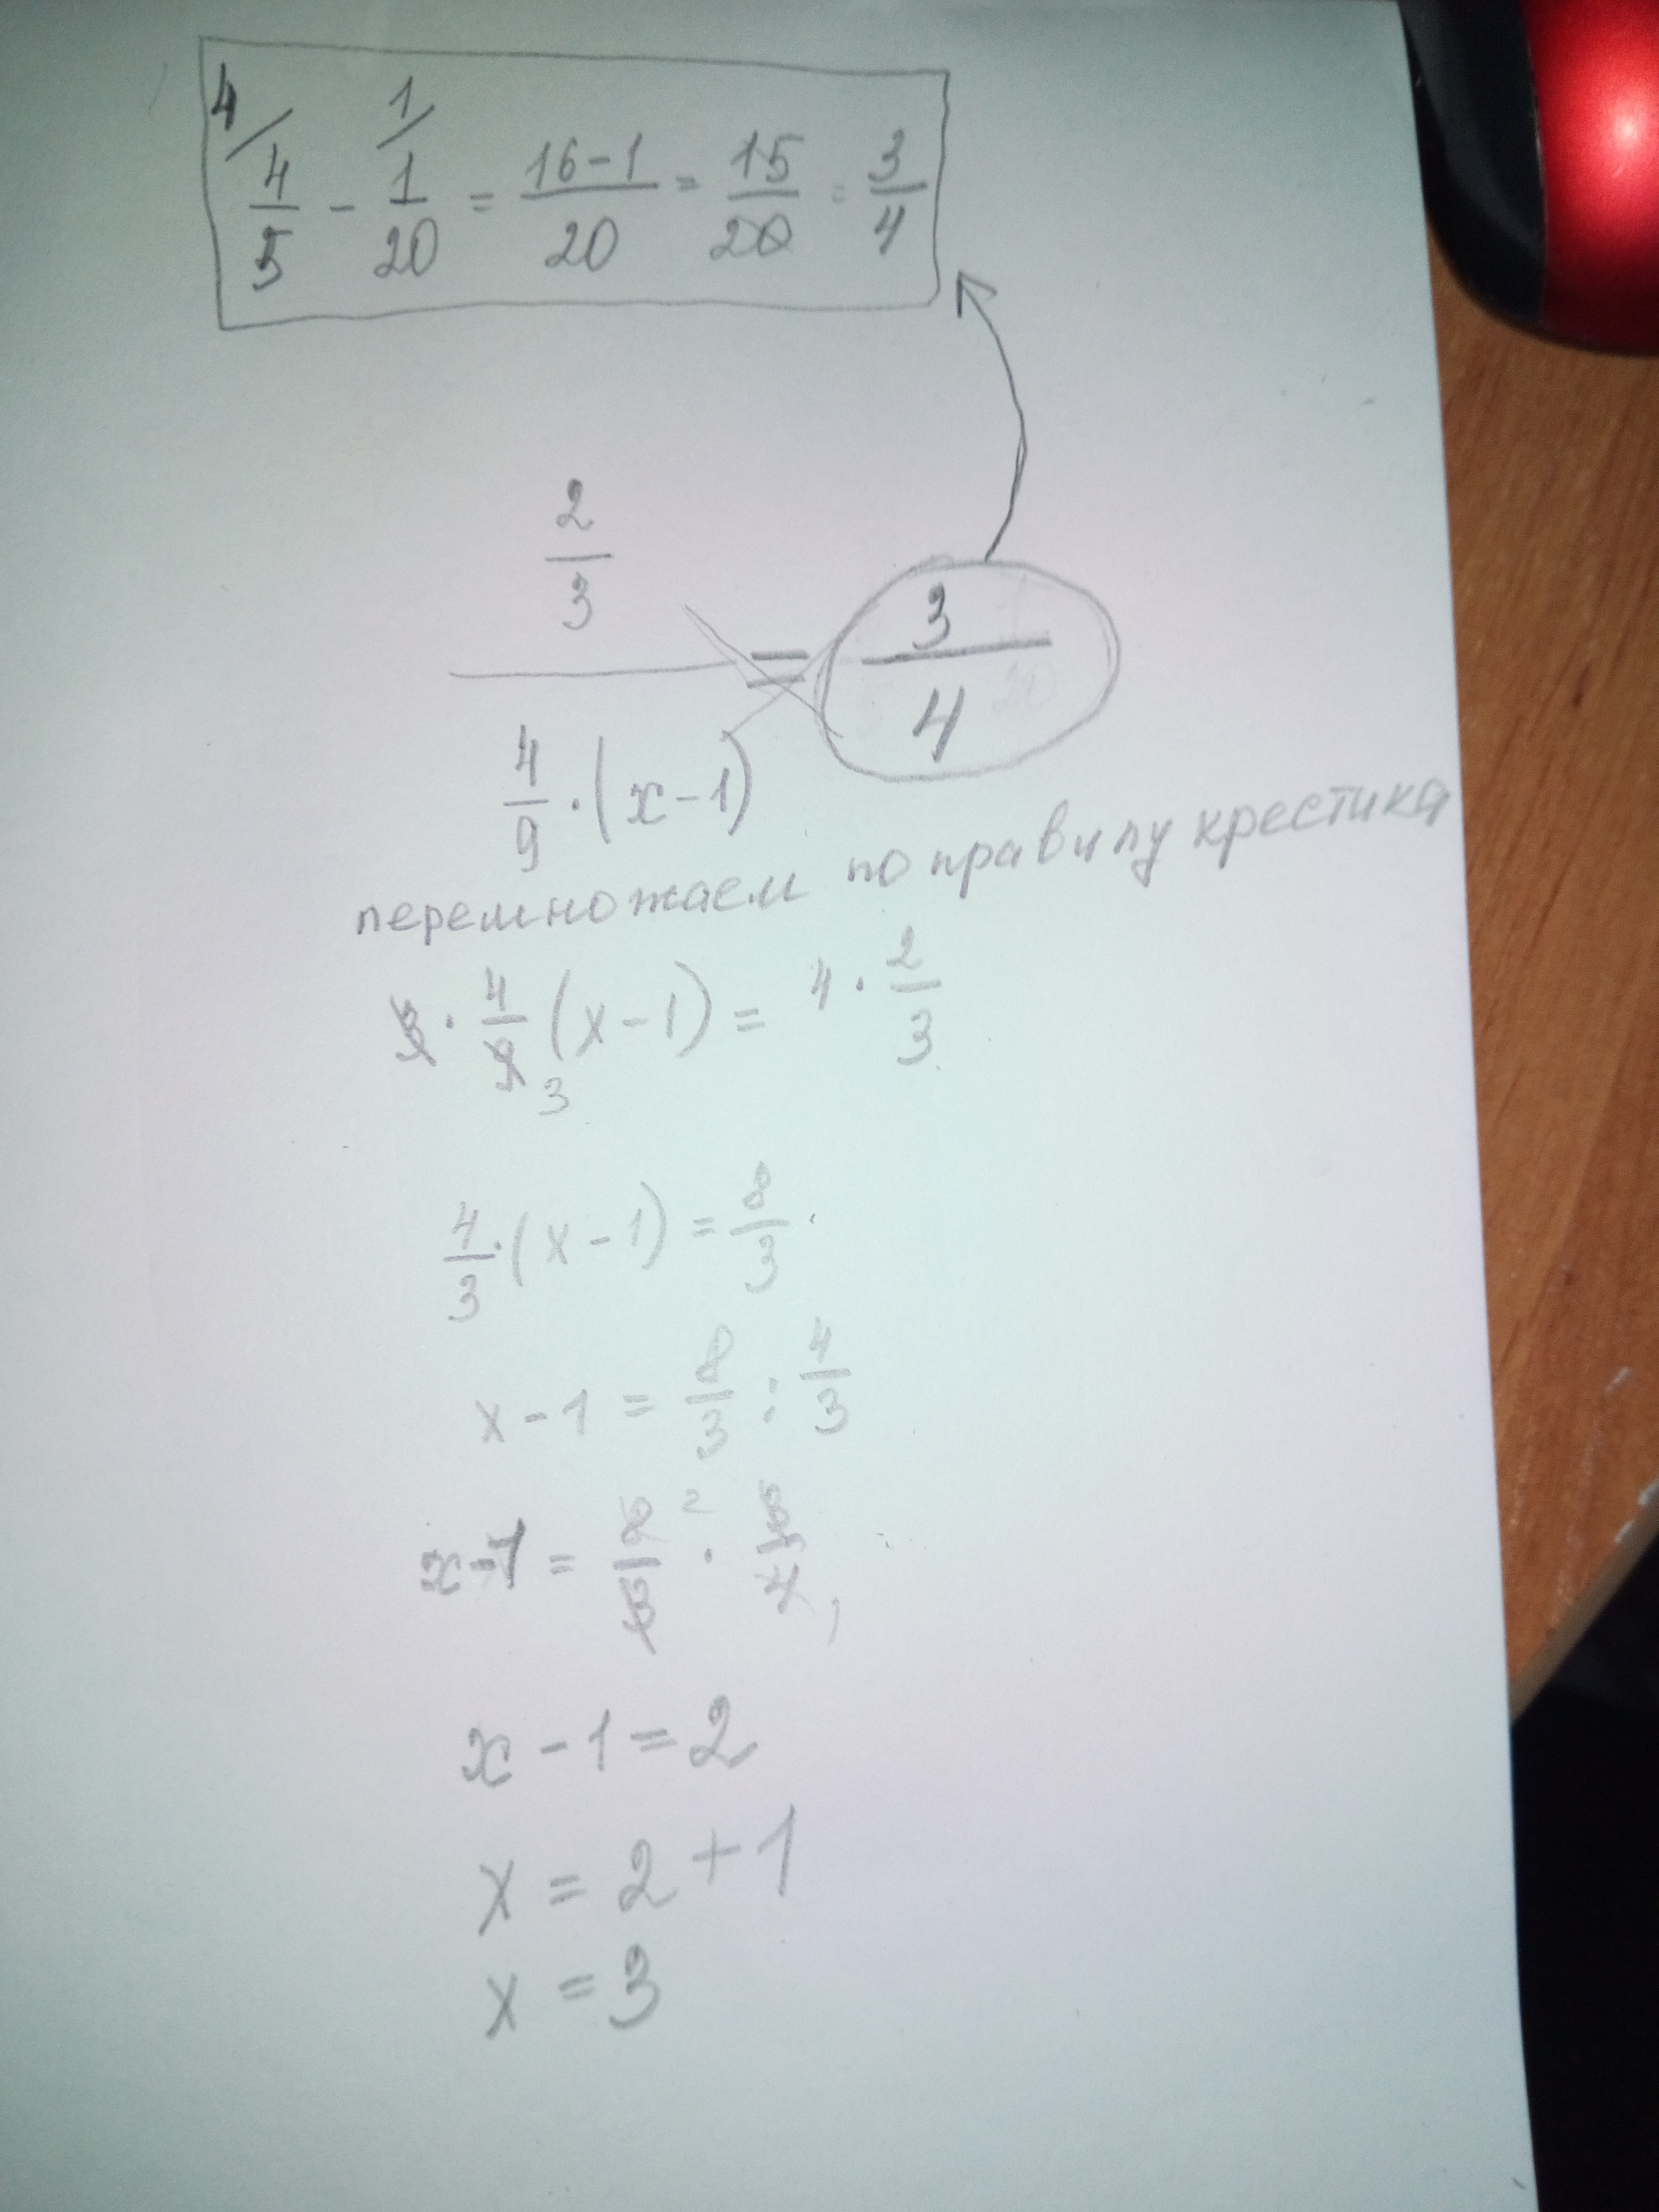 4/ 1/
4/5 - 1/20 = (16-1)/20 = 15/20 = 3/4
(2/3)/(4/9 · (x-1)) = 3/4
перемножаем по правилу крестика
3 · 4/9 3 (x-1) = 4 · 2/3
4/3 · (x-1) = 8/3
x-1 = 8/3 : 4/3
x-1 = 8/3 2 · 3/4,
x-1=2
x = 2+1
x = 3